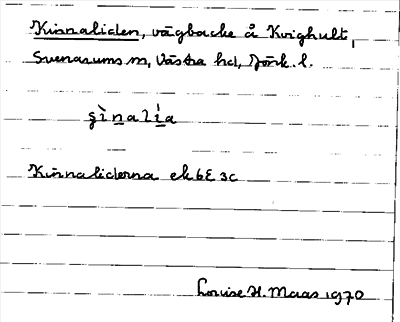 Kinnaliden, vägbacke å Kvighult,
Svenarums sn, Västra hd, Jönk. l.
Kinnaliderna ek 6E 3c
Louise H. Maas 1970